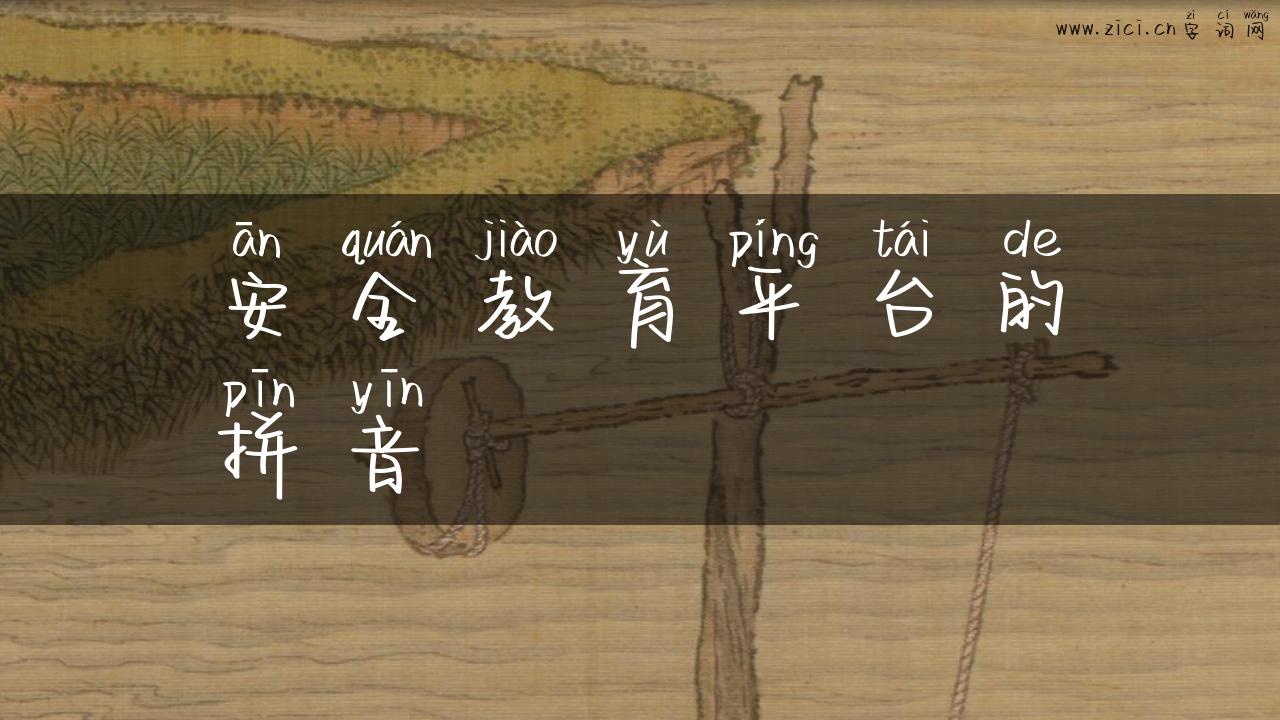 zì cí wǎng
www.zici.cn 字词网
ān quán jiào yù píng tái de
安全教育平台的
pīn yīn
拼音